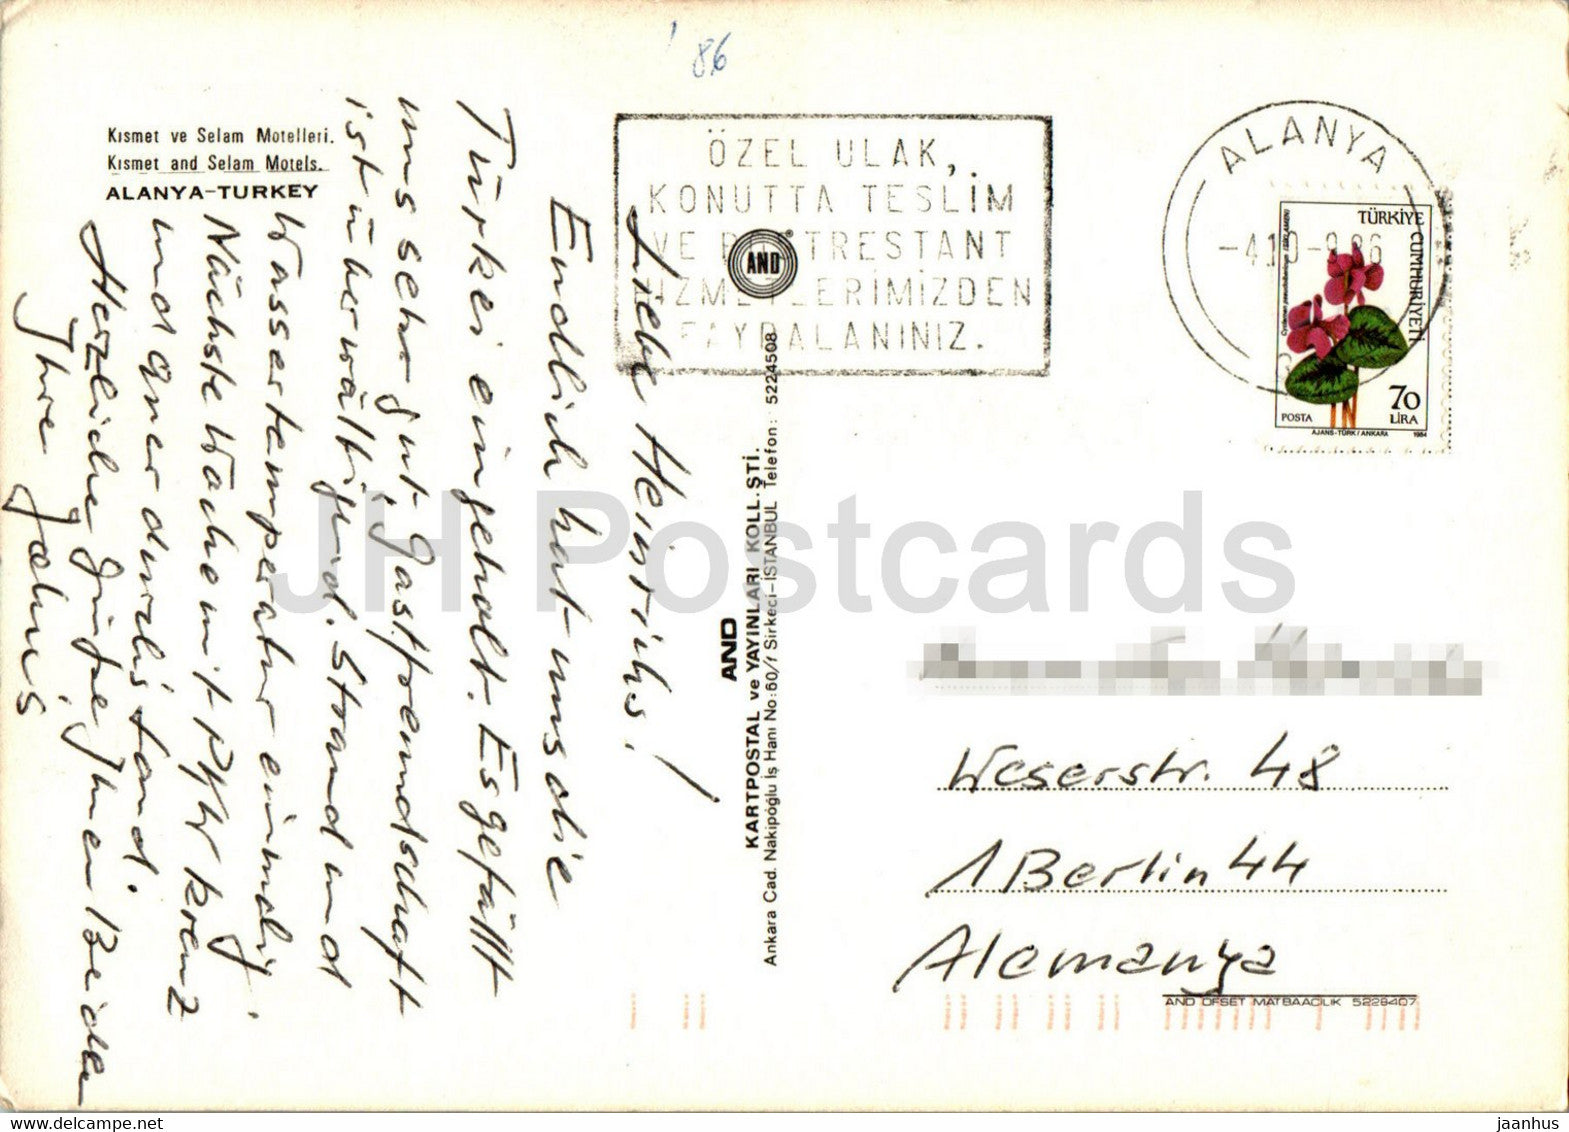 '86
Kısmet ve Selam Motelleri.
Kısmet and Selam Motels.
ALANYA-TURKEY
Liebe
Endlich hat uns die
Türkei eingeholt. Es gefällt
uns sehr gut, Gastfreundschaft
ist überwältigend. Strand und
Wassertemperatur einmalig.
Nächste Woche mit PKW kreuz
und quer durchs Land.
Herzliche Grüße Ihnen Beiden
Ihre
AND
KARTPOSTAL ve YAYINLARI KOLL. ŞTİ.
Ankara Cad. Nakipoğlu İş Hanı No:60/ Sirkeci-İSTANBUL Telefon: 5224508
AND
ÖZEL ULAK,
KONUTTA TESLİM
VE TRESTANT
LERİMİZDEN
FAYDALANINIZ.
ALANYA
TÜRKİYE
CUMHURİYETİ
POSTA
70
LİRA
AJANS-TÜRK/ANKARA
1984
Weserstr. 48
1 Berlin 44
Alemanya
AND OFSET MATBAACILIK 5228407
JH Postcards
delcampe.net
jaanhus